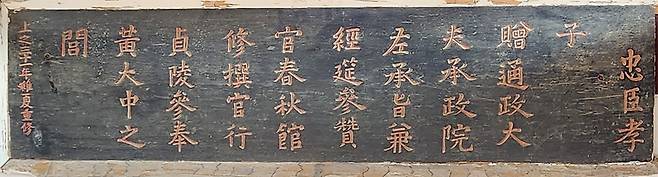 忠臣孝
子
贈通政大
夫承政院
左承旨兼
經筵參贊
官春秋館
修撰官行
貞陵參奉
黃大中之
閭
上之三十一年維夏重修